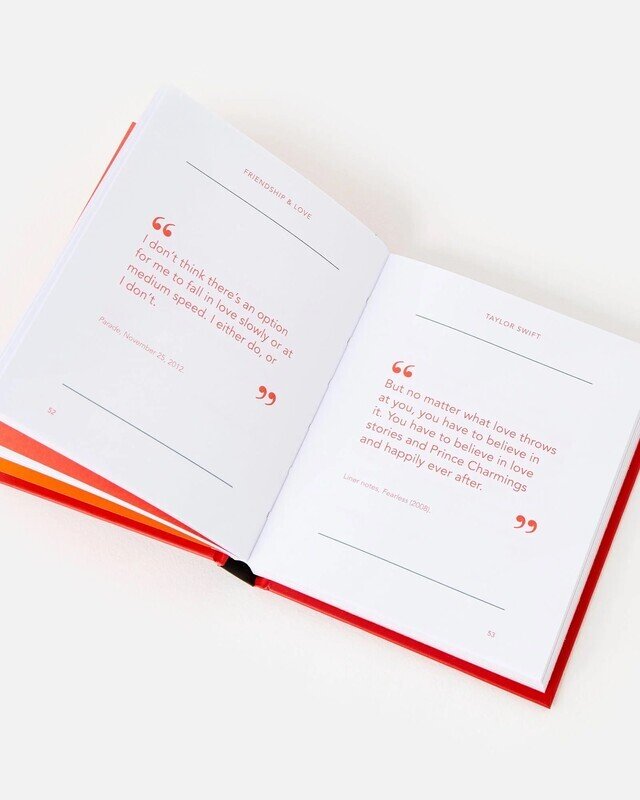 FRIENDSHIP & LOVE
“
I don't think there's an option
for me to fall in love slowly or at
medium speed. I either do, or
I don't.
Parade, November 25, 2012.
”
52
TAYLOR SWIFT
“
But no matter what love throws
at you, you have to believe in
it. You have to believe in love
stories and Prince Charmings
and happily ever after.
Liner notes, Fearless (2008).
”
53